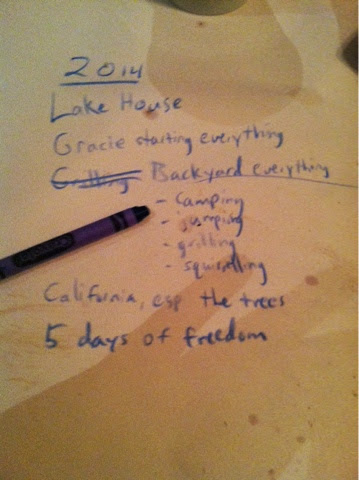 2014
Lake House
Gracie starting everything
Grilling Backyard everything
- camping
- jumping
- grilling
- squirrelling
California, esp the trees
5 days of freedom